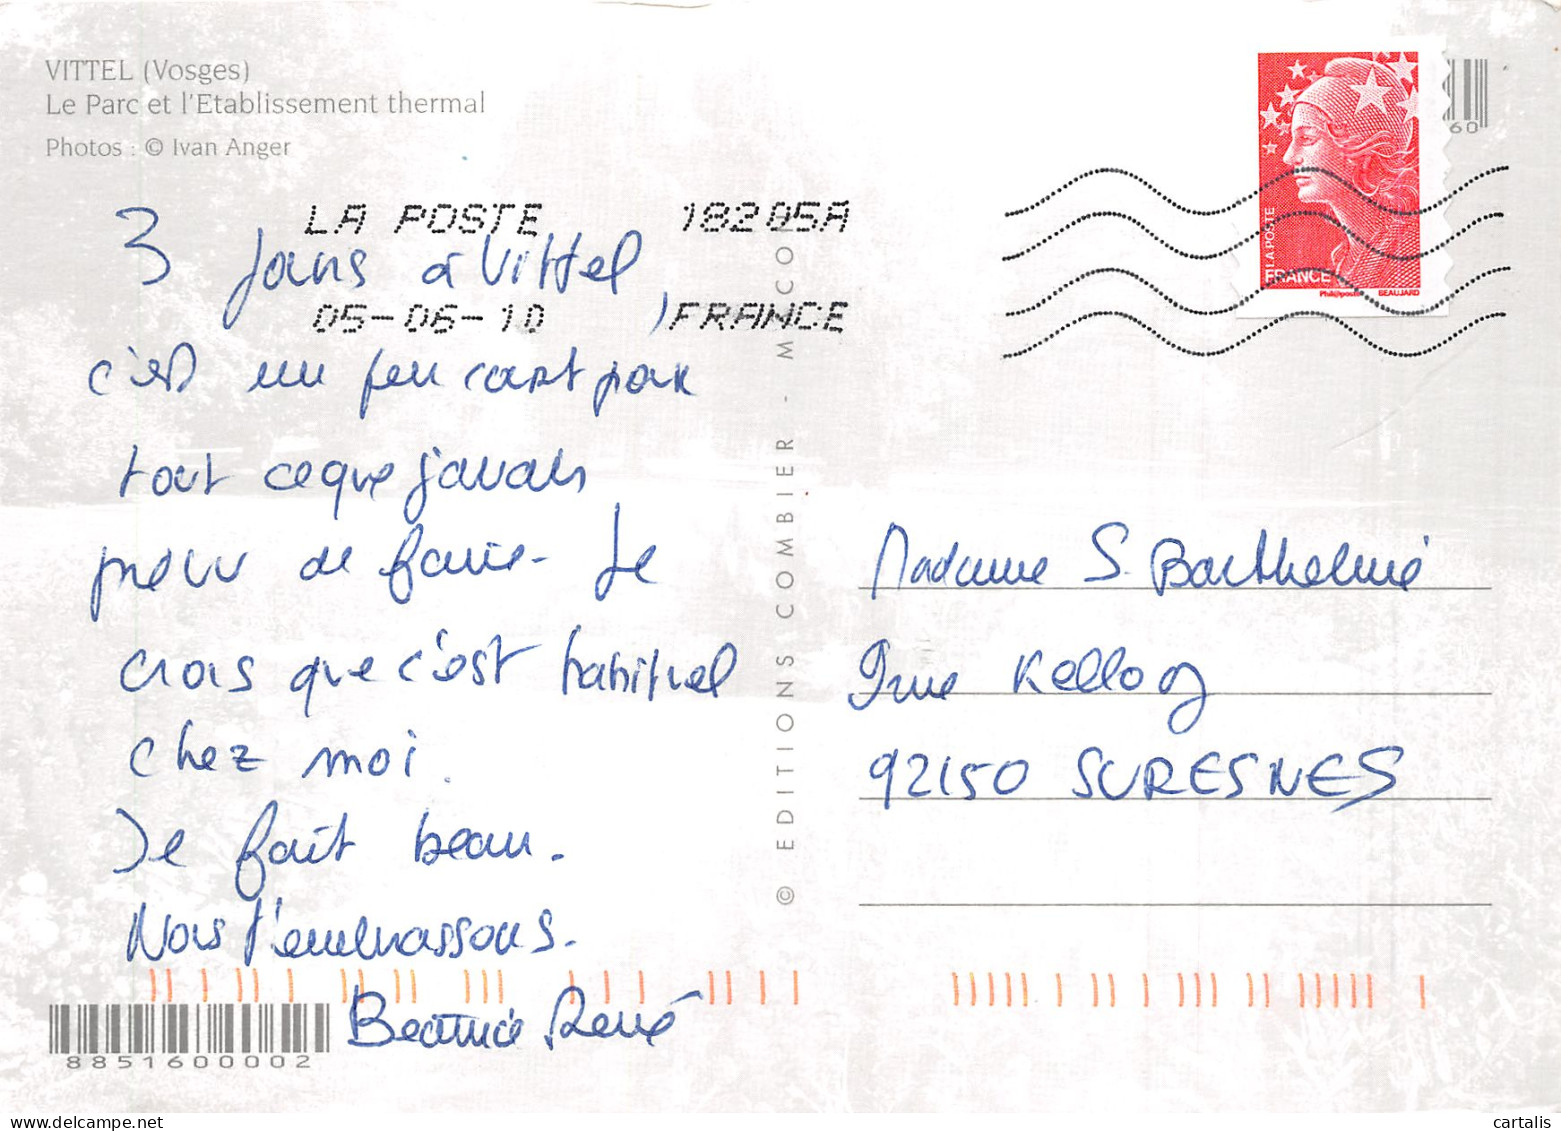 VITTEL (Vosges)
Le Parc et l'Etablissement thermal
Photos : © Ivan Anger
LA POSTE 18205A
05-06-10 FRANCE
3 jours à Vittel,
c'est un peu court pour
tout ce que j'avais
prévu de faire. Je
crois que c'est habituel
chez moi.
Il fait beau.
Nous t'embrassons.
Beatrice René
© EDITIONS COMBIER - MÂCON
60
LA POSTE
FRANCE
BEAUJARD
Madame S. Barthelmé
rue Kellog
92150 SURESNES
8851600002
cartalis